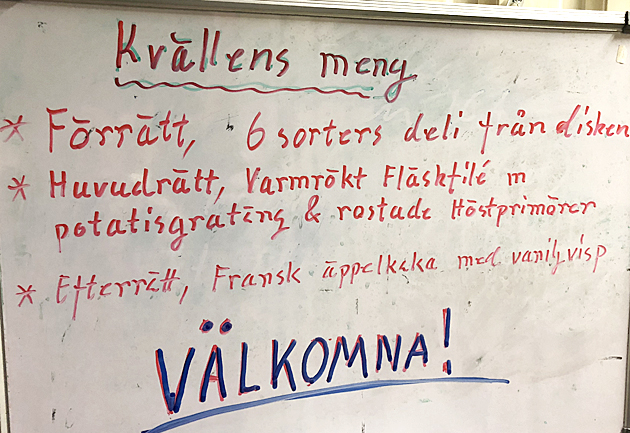 Kvällens meny
* Förrätt, 6 sorters deli från disken
* Huvudrätt, Varmrökt Fläskfilé m
potatisgratäng & rostade Höstprimörer
* Efterrätt, Fransk äppelkaka med vaniljvisp
VÄLKOMNA!